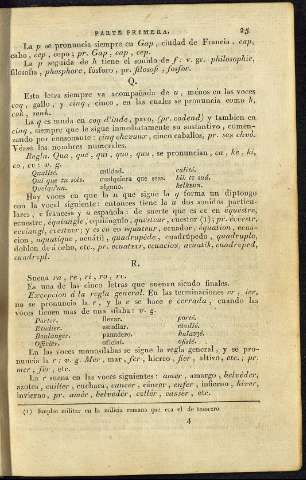 PARTE PRIMERA. 25
La p se pronuncia siempre en Gap, ciudad de Francia, cap,
cabo, cep, cepo; pr. Gap, cap, cep.
La p seguida de h tiene el sonido de f: v. gr. philosophie,
filosofia, phosphore, fosforo, pr. filosofi, fosfor.
Q.
Esta letra siempre va acompañada de u, ménos en las voces
coq, gallo, y cinq, cinco, en las cuales se pronuncia como k,
cok, senk.
La q es muda en coq d'inde, pavo, (pr. codend) y tambien en
cinq, siempre que le sigue inmediatamente su sustantivo, comen-
zando por consonante: cinq chevaux, cinco caballos, pr. sen chvó.
Véase los nombres numerales.
Regla. Qua, que, qui, quo, quu, se pronuncian, ca, ke, ki,
co, cu: v. g.
Qualité, calidad. calité.
Qui que tu sois, cualquiera que seas. ki
Quelqu'un. alguno. kelkeun.
Hoy voces en que la u que sigue la q forma un diptongo
con la vocal siguiente: entonces tiene la u dos sonidos particu-
lares, e frances y u española: de suerte que es ec en equestre,
ecuestre, équiangle, equiángulo, questeur, cuestor (1); pr. ecuestr,
ecuiangl, cuesteur; y es cu en équateur, ecuador, équation, ecua-
cion, aquatique, acuátil, quadrupède, cuadrúpedo, quadruple,
doblon de á ocho, etc., pr. ecuateur, ecuacion, acuatik, cuadruped,
cuadrupl.
R.
Suena ra, re, ri, ro, ru.
Es una de las cinco letras que suenan siendo finales.
Excepcion á la regla general. En las terminaciones er, ier,
no se pronuncia la r, y la e se hace é cerrada, cuando las
voces tienen mas de una silaba: v. g.
Porter, llevar. porté.
Etudier. estudiar. etudié.
Boulanger. panadero. bulangé.
Officier, oficial. ofisié.
En las voces monosílabas se sigue la regla general, y se pro-
nuncia la r: v. g. Mer, mar, fer, hierro, fier, altivo, etc., pr.
mer, fer, etc.
La r suena en las voces siguientes: amer, amargo, belvéder,
azotea, cuiller, cuchara, cancer, cáncer, enfer, infierno, hiver,
invierno, pr. amér, belvéder, culler, cancer, etc.
(1) Empleo militar en la milicia romana que era el de tesorero
4